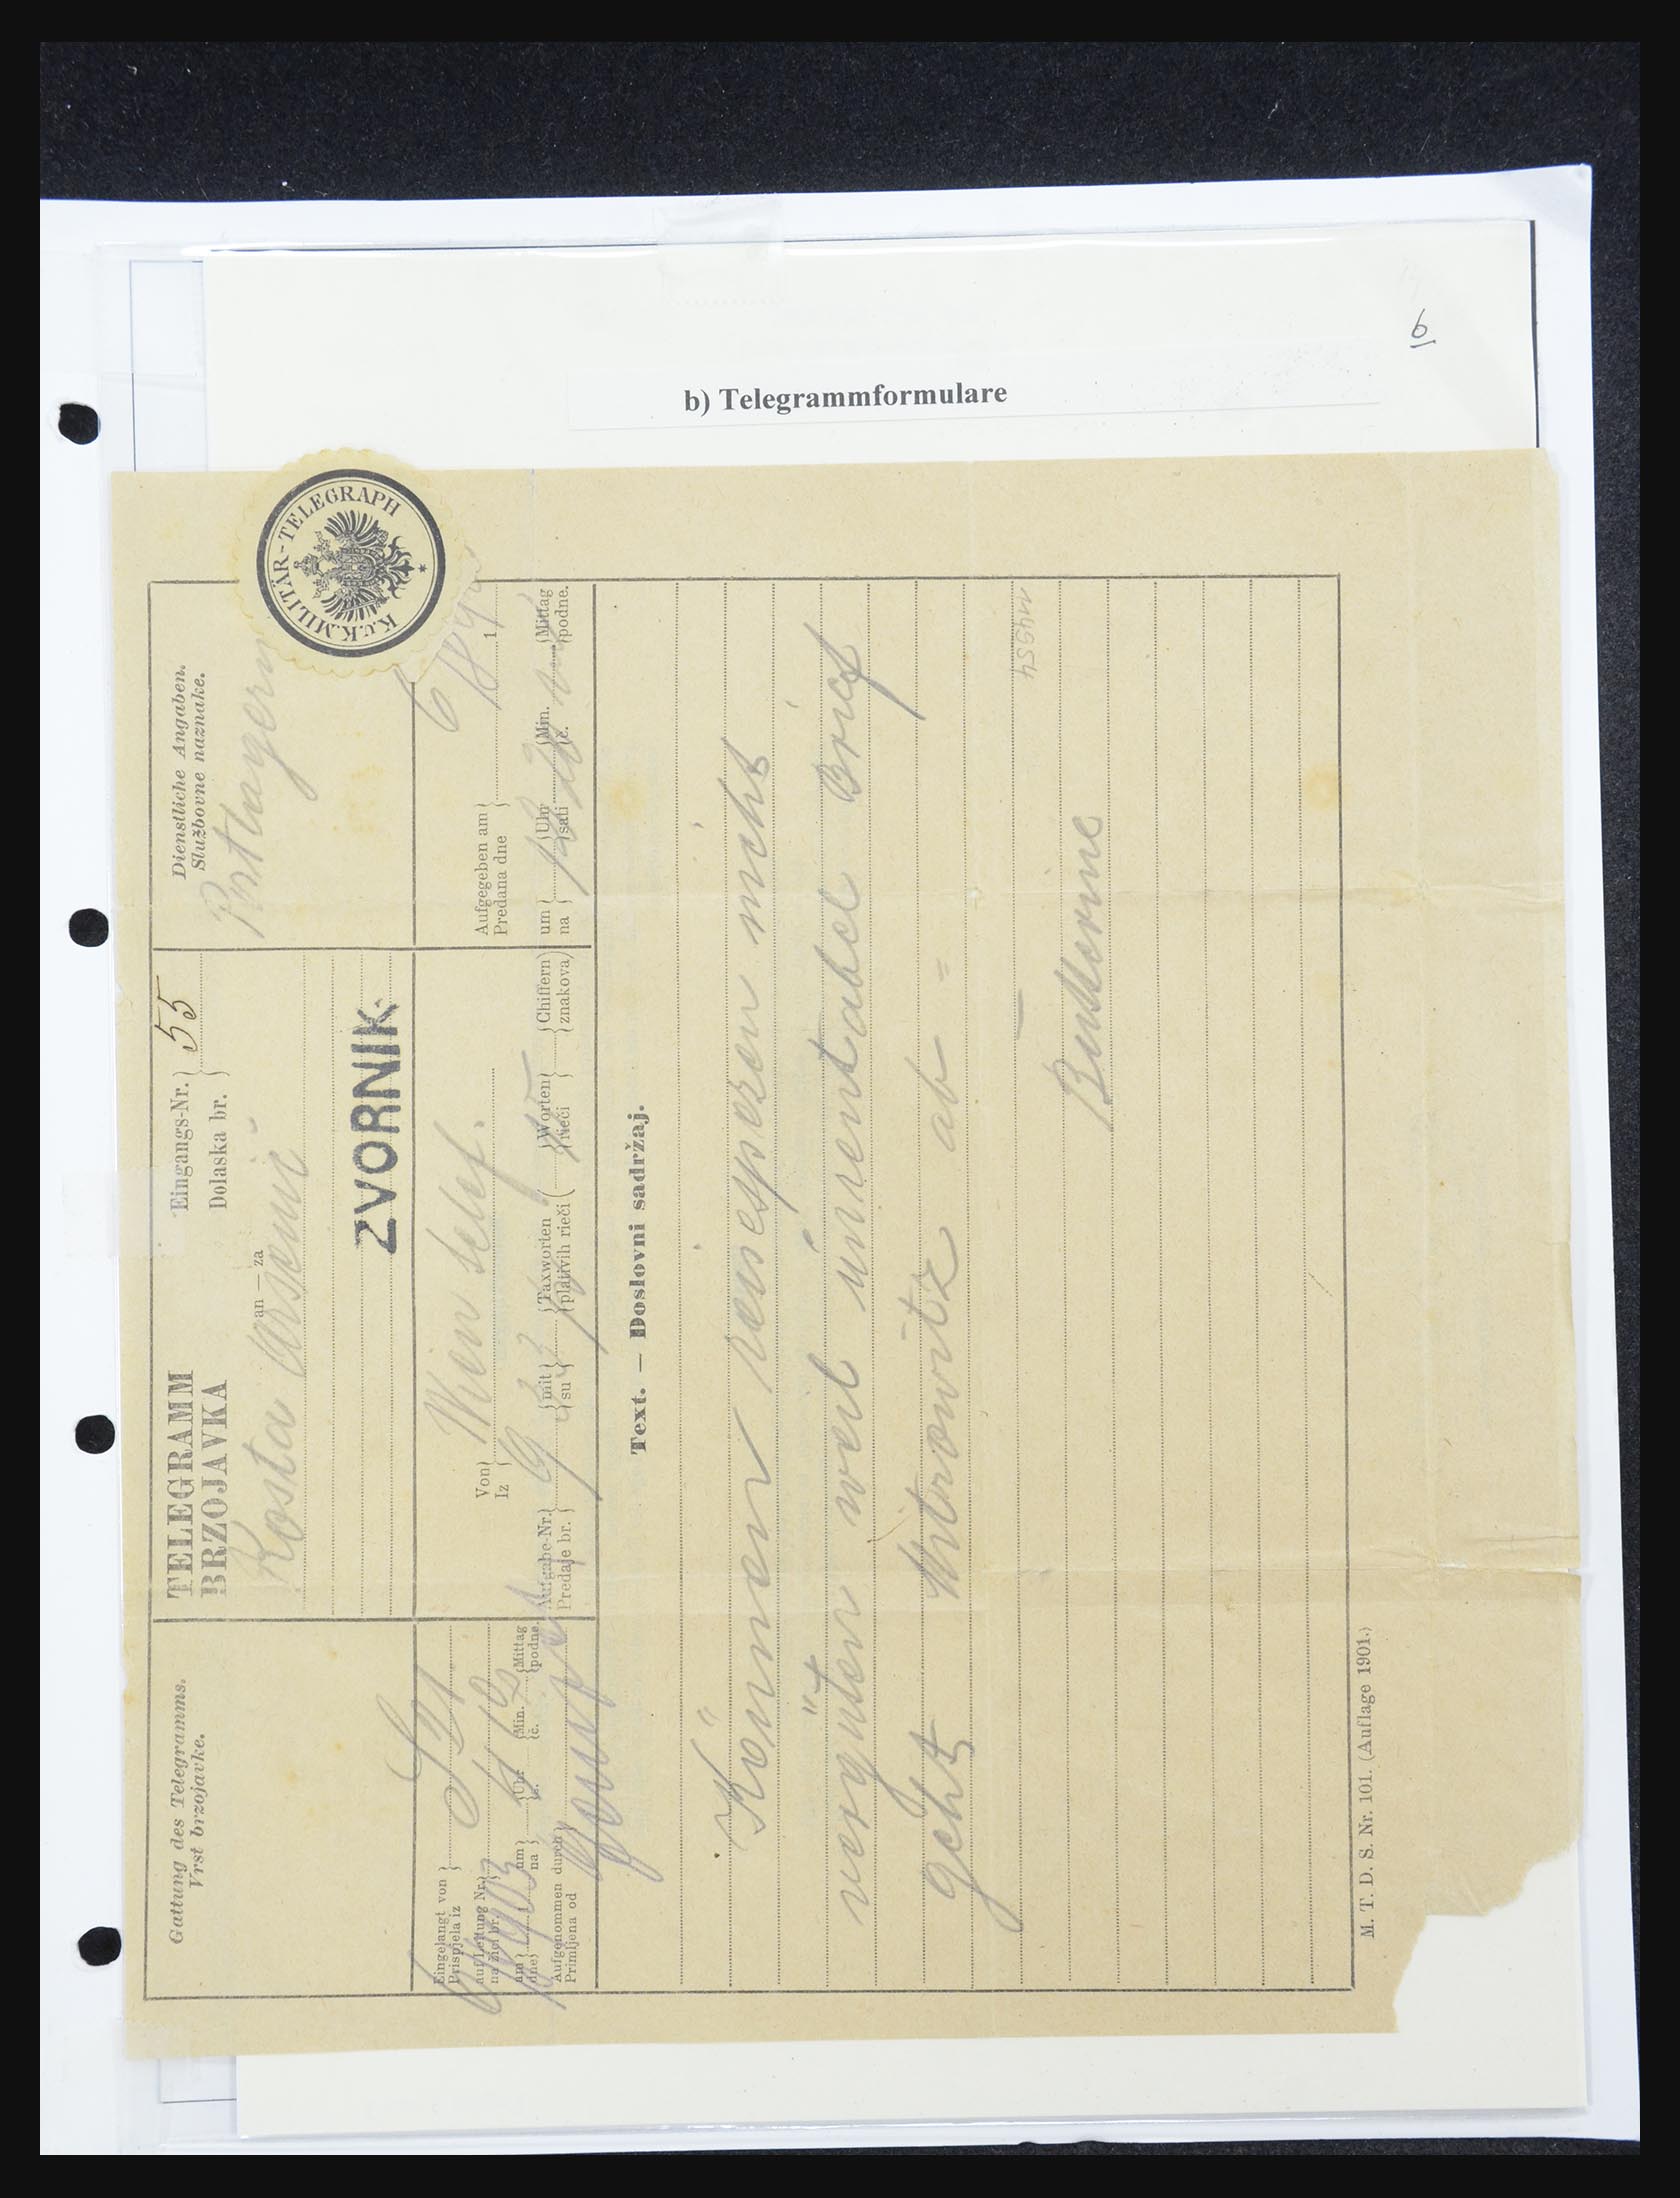 6
b) Telegrammformulare
K.u.K. MILITÄR-TELEGRAPH
Gattung des Telegramms.
Vrst brzojavke.
TELEGRAMM
BRZOJAVKA
Eingangs-Nr. 55
Dolaska br.
an — za
Kosta Arsenić
ZVORNIK
Dienstliche Angaben.
Službovne naznake.
Postlagernd
Eingelangt von
Prispjela iz
auf Leitung Nr.
na žici br.
am 1903 um Uhr Min. Mittag
dne na s. č. podne
Aufgenommen durch
Primljena od
Von Wien
Iz
Aufgabe-Nr. mit Taxworten Worten Chiffern
Predaje br. su plativih rieči rieči znakova
Aufgegeben am 1
Predana dne
um Uhr Min. Mittag
na sati č. podne.
Text. — Doslovni sadržaj.
Können reisespesen nicht
vergüten weil unrentabel Brief
geht Mitrowitz ab =
M4554
M. T. D. S. Nr. 101. (Auflage 1901.)